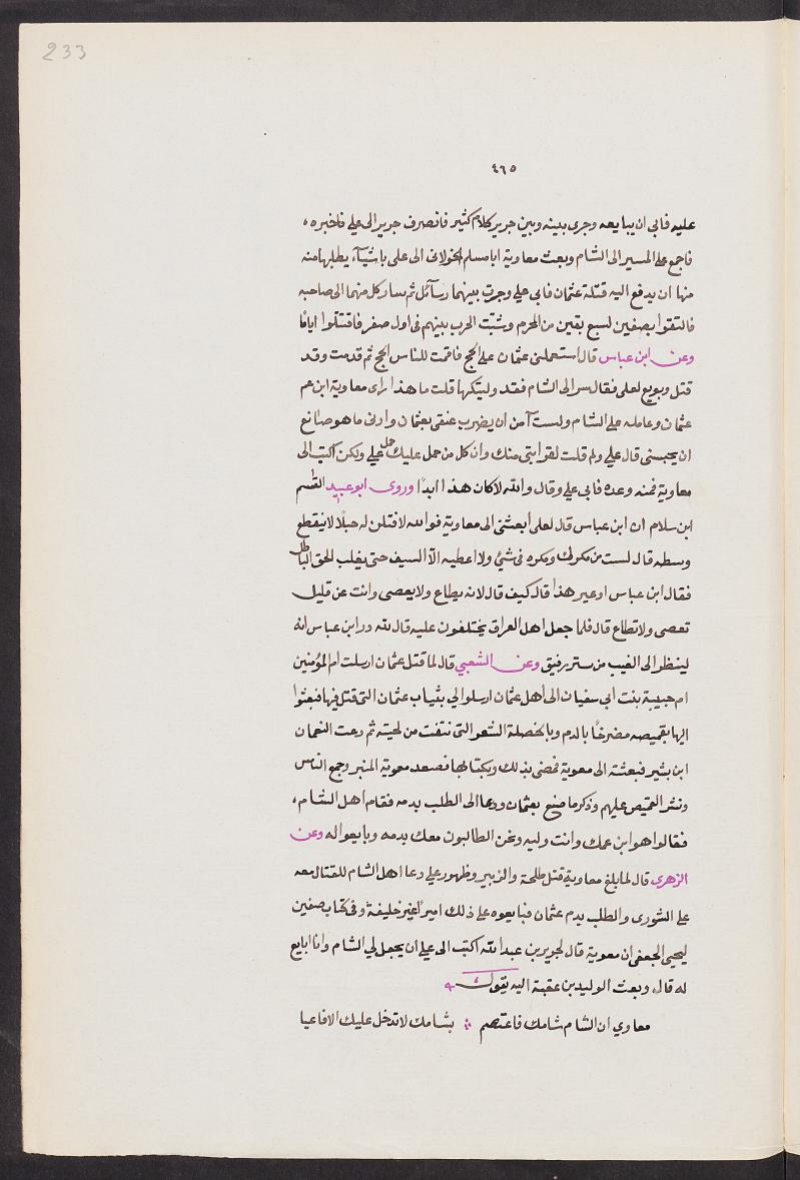 233
٤٦٥
عليه فابى ان يبايعه وجرى بينه وبين جرير كلام كثير فانصرف جرير الى علي فاخبره ،
فاجمع على المسير الى الشام وبعث معاوية ابا مسلم الخولانى الى على باشيآء يطلبها منه
منها ان يدفع اليه قتلة عثمان فابى علي وجرت بينهما رسآئل ثم سار كل منهما الى صاحبه
فالتقوا بصفين لسبع بقين من المحرم وشبّت الحرب بينهم فى اول صفر فاقتتلوا اياما
وعن ابن عباس قال استعملنى عثمان على الحج فاقمت للناس الحج ثم قدمت وقد
قتل وبويع لعلى فقال سر الى الشام فقد وليتكها قلت ما هذا راى معاوية ابن عم
عثمان وعامله على الشام ولست آمن ان يضرب عنقى بعثمان وادنى ما هو صانع
ان يحبسنى قال علي ولم قلت لقرابتى منك وان كل من حمل عليك حمل علي ولكن اكتب الى
معاوية فمنه وعده فابى علي وقال والله لا كان هذا ابدا وروى ابو عبيد القسم
ابن سلام ان ابن عباس قال لعلى ابعثنى الى معاوية فوالله لافتلن له حبلا لا ينقطع
وسطه قال لست من مكرك ومكره فى شئ ولا اعطيه الا السيف حتى يغلب الحق الباطل
فقال ابن عباس او غير هذا قال كيف قال لانه يطاع ولا يعصى وانت عن قليل
تعصى ولا تطاع قال فلما جعل اهل العراق يختلفون عليه قال لله در ابن عباس انه
لينظر الى الغيب من ستر رقيق وعن الشعبي قال لما قتل عثمان ارسلت ام المؤمنين
ام حبيبة بنت ابى سفيان الى اهل عثمان ارسلوا الي بثياب عثمان التى قتل فيها فبعثوا
اليها بقميصه مضرخًا بالدم وبالخصلة الشعر التى نتفت من لحيته ثم دعت النعمان
ابن بشير فبعثته الى معوية فمضى بذلك وبكتابها فصعد معوية المنبر وجمع الناس
ونشر القميص عليهم وذكر ما صنع بعثمان ودعا الى الطلب بدمه فقام اهل الشام ،
فقالوا هو ابن عمك وانت وليه ونحن الطالبون معك بدمه وبايعوا له وعن
الزهرى قال لما بلغ معاوية قتل طلحة والزبير وظهور علي دعا اهل الشام للقتال معه
على الشورى والطلب بدم عثمان فبايعوه على ذلك اميرا غير خليفة وفى كتاب صفين
ليحيى الجعفى ان معوية قال لجرير بن عبد الله اكتب الى علي ان يجعل لي الشام وانا ابايع
له قال وبعث الوليد بن عقبة اليه يقول
معاوي ان الشام شامك فاعتصم ؞ بشامك لا تدخل عليك الافاعيا